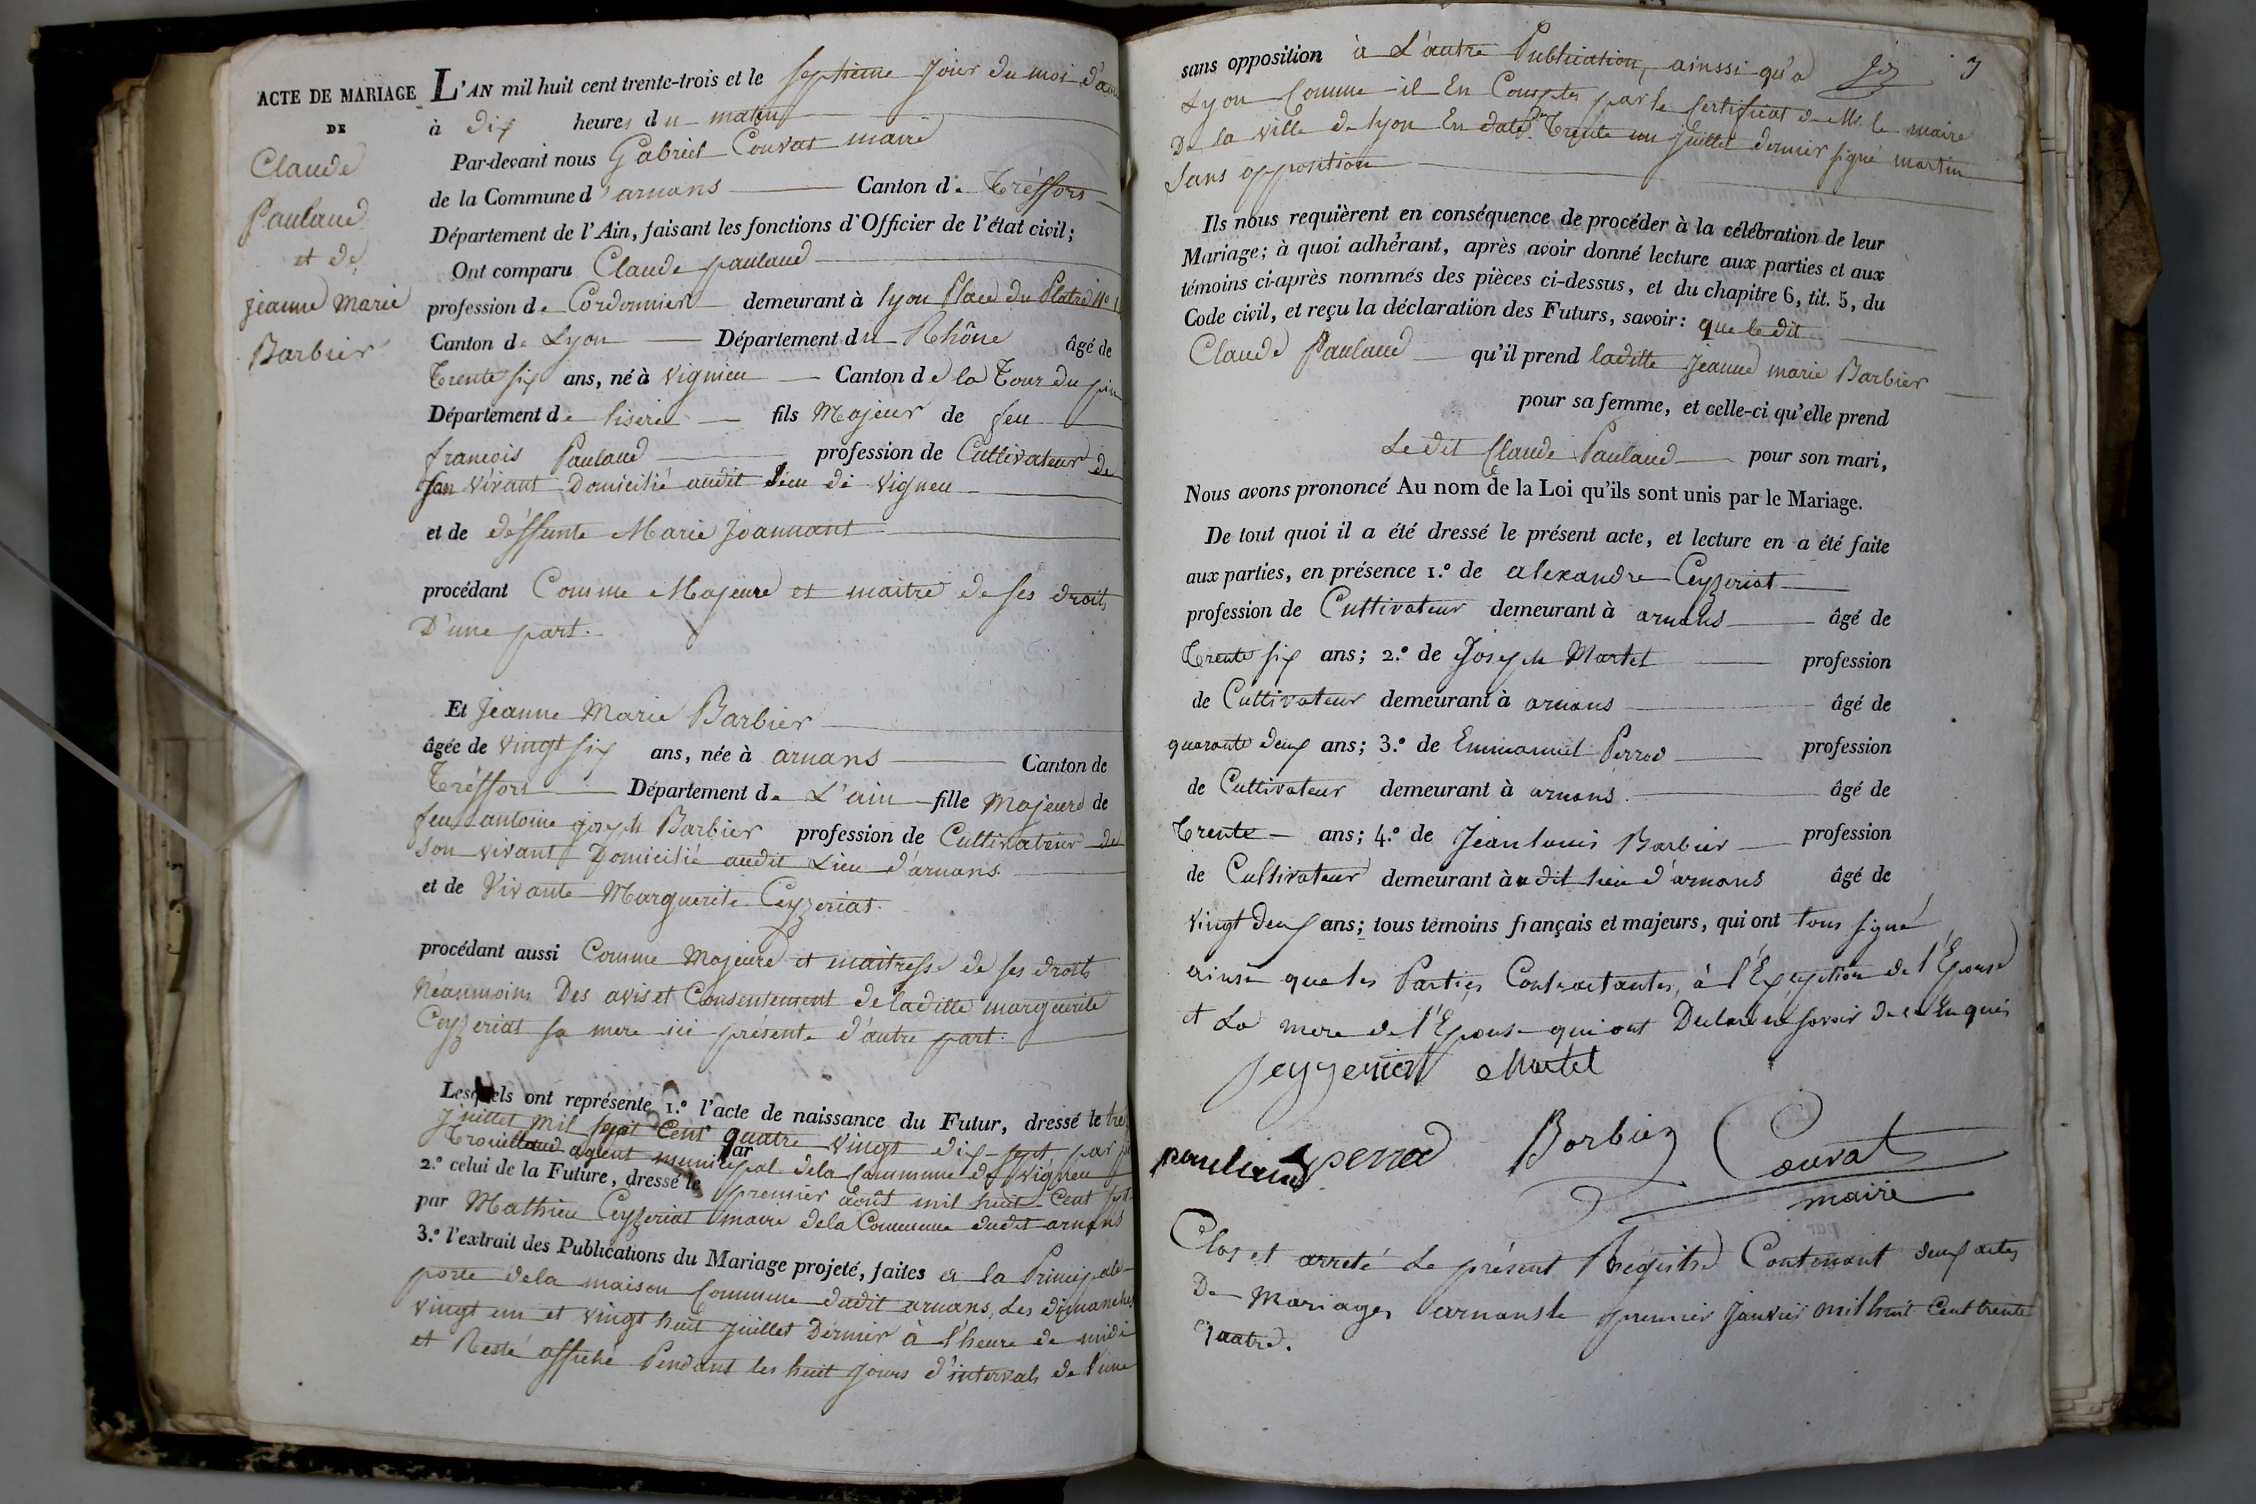 ACTE DE MARIAGE
DE
Claude
Paulaud
et de
jeanne Marie
Barbier
L'AN mil huit cent trente-trois et le septieme jour du mois d'aou
à dix heures du matin
Par-devant nous Gabriel Couvat maire
de la Commune d'arnans Canton de Tréffors
Département de l'Ain, faisant les fonctions d'Officier de l'état civil;
Ont comparu Claude paulaud
profession de Cordonnier demeurant à lyon Place du Platre N° 1
Canton de Lyon Département du Rhône âgé de
Trente six ans, né à vignieu Canton de la Tour du pin
Département de lisere fils Majeur de feu
françois Paulaud profession de Cultivateur de
son vivant Domicilié audit lieu de Vigneu
et de déffunte Marie Joannant
procédant Comme Majeure et maitre de ses droits
D'une part.
Et Jeanne Marie Barbier
âgée de vingt six ans, née à arnans Canton de
Tréffors Département de L'ain fille Majeure de
feu antoine joseph Barbier profession de Cultivateur de
son vivant Domicilié audit Lieu d'arnans
et de Vivante Marguerite Ceyzeriat
procédant aussi Comme Majeure et maitresse de ses droits
Néanmoins Des avis et Consentement de laditte marguerite
Ceyzeriat sa mere ici présente d'autre part.
Lesquels ont représenté 1.° l'acte de naissance du Futur, dressé le
juillet mil sept Cent quatre vingt dix-sept par
Trouilloud agent municipal dela Commune de Vigneu
2.° celui de la Future, dressé le premier août mil huit Cent sept
par Mathieu Ceyzeriat maire dela Commune dudit arnans
3.° l'extrait des Publications du Mariage projeté, faites a la Principale
porte dela maison Commune dudit arnans, Les dimanches
vingt un et vingt huit juillet Dernier à l'heure de midi
et Resté affiché Pendant les huit jours d'intervals de l'une
sans opposition à L'autre Publication, ainssi qu'a
Lyon Comme il En Compte par le Certificat de Mr. le maire
De la ville de lyon En date Du Trente un juillet dernier signé martin
Sans opposition
Ils nous requièrent en conséquence de procéder à la célébration de leur
Mariage; à quoi adhérant, après avoir donné lecture aux parties et aux
témoins ci-après nommés des pièces ci-dessus, et du chapitre 6, tit. 5, du
Code civil, et reçu la déclaration des Futurs, savoir: que le dit
Claude Paulaud qu'il prend laditte Jeanne marie Barbier
pour sa femme, et celle-ci qu'elle prend
Le dit Claude Paulaud pour son mari,
Nous avons prononcé Au nom de la Loi qu'ils sont unis par le Mariage.
De tout quoi il a été dressé le présent acte, et lecture en a été faite
aux parties, en présence 1.° de alexandre Ceyzeriat
profession de Cultivateur demeurant à arnans âgé de
Trente six ans; 2.° de Joseph Martel profession
de Cultivateur demeurant à arnans âgé de
quarante deux ans; 3.° de Emmanuel Perrod profession
de Cultivateur demeurant à arnans âgé de
Trente ans; 4.° de Jean louis Barbier profession
de Cultivateur demeurant à udit lieu d'arnans âgé de
vingt deux ans; tous témoins français et majeurs, qui ont tous signé
ainsi que les Parties Contractantes, à l'Exception de l'Epouse
et La mere de l'Epouse qui ont Declaré savoir de ce Enquis
Ceyzeriat Martel
paulaud perrod Borbier Couvat
maire
Clos et arreté Le présent Régistre Contenant deux actes
De Mariages arnans le premier Janvier mil huit Cent trente
quatre.